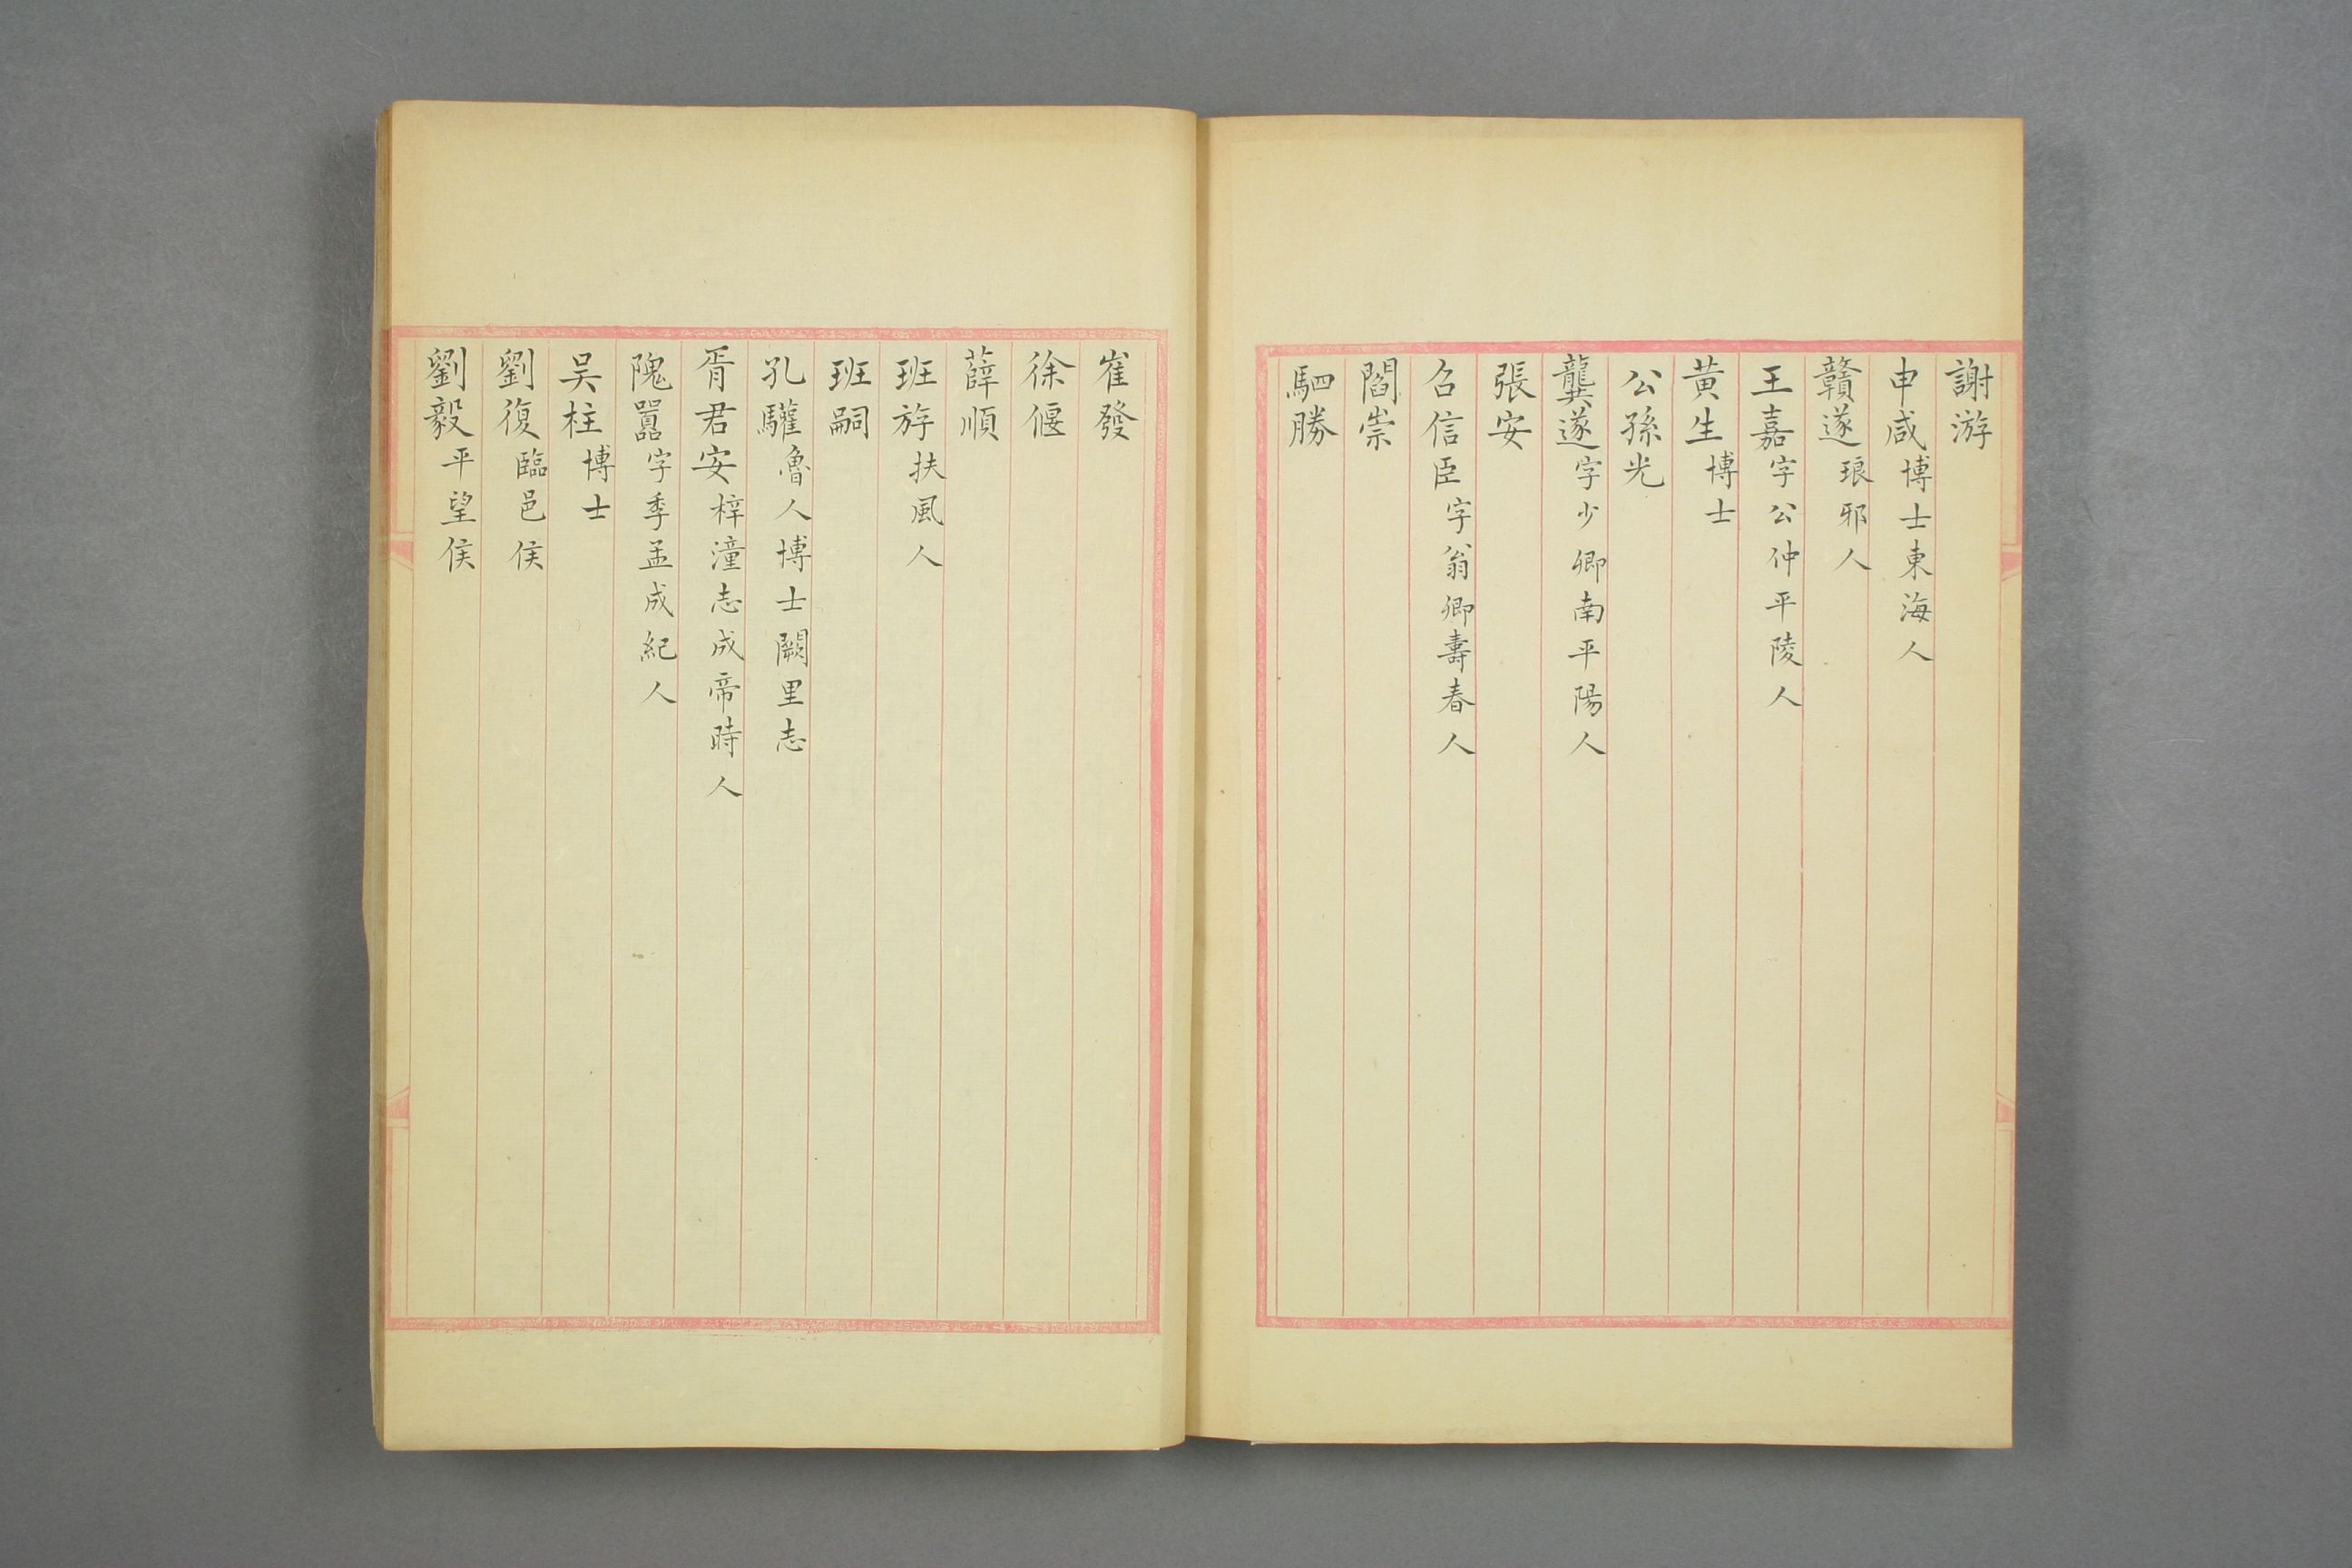 謝游
申咸博士東海人
贛遂琅邪人
王嘉字公仲平陵人
黄生博士
公孫光
龔遂字少卿南平陽人
張安
召信臣字翁卿壽春人
閻崇
駟勝
崔發
徐偃
薛順
班斿扶風人
班嗣
孔驩魯人博士闕里志
胥君安梓潼志成帝時人
隗囂字季孟成紀人
吴柱博士
劉復臨邑侯
劉毅平望侯